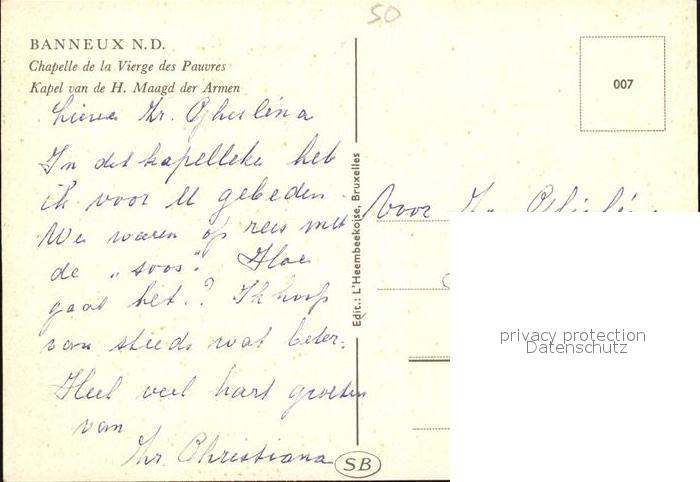 50
BANNEUX N.D.
Chapelle de la Vierge des Pauvres
Kapel van de H. Maagd der Armen
007
Lieve Zr. Ghislèna
In dit kapelleke heb
ik voor U gebeden.
We waren op reis met
de „soos". Hoe
gaat het.? Ik hoop
van steeds wat beter.
Heel veel hart groeten
van
Zr Christiana
Edit.: L'Heembeekoise, Bruxelles
SB
Voor Zr.
privacy protection
Datenschutz